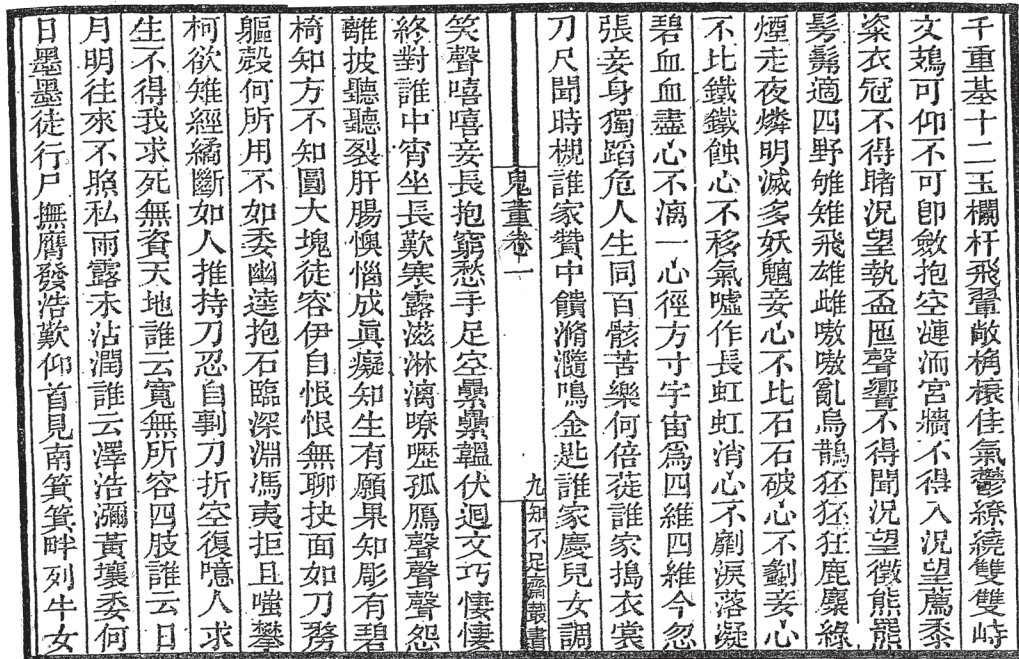 千重基十二玉欄杆飛翬敞桷榱佳氣鬱繚繞雙雙峙
文鴂可仰不可卽斂抱空漣洏宮牆不得入况望薦黍
粢衣冠不得睹況望執盃匜聲響不得聞況望徵熊羆
髣髴適四野雊雉飛雄雌嗷嗷亂烏鵲狉狉狂鹿麋綠
煙走夜燐明滅多妖魑妾心不比石石破心不劙妾心
不比鐵鐵蝕心不移氣噓作長虹虹消心不劘淚落凝
碧血血盡心不漓一心徑方寸宇宙爲四維四維今忽
張妾身獨蹈危人生同百骸苦樂何倍蓰誰家搗衣裳
刀尺聞時槻誰家贊中饋滫瀡鳴金匙誰家慶兒女調
鬼董卷一
九
知不足齋叢書
笑聲嘻嘻妾長抱窮愁手足空纍纍韞伏迴文巧悽悽
終對誰中宵坐長歎寒露滋淋漓嘹嚦孤鴈聲聲聲怨
離披聽聽裂肝腸懊惱成眞癡知生有願果知彫有碧
椅知方不知圓大塊徒容伊自恨恨無聊抉面如刀剺
軀殼何所用不如委幽逵抱石臨深淵馮夷拒且嗤攀
柯欲雉經繘斷如人推持刀忍自剚刀折空復噫人求
生不得我求死無資天地誰云寬無所容四肢誰云日
月明往來不照私雨露未沾潤誰云澤浩瀰黃壤委何
日墨墨徒行尸撫膺發浩歎仰首見南箕箕畔列牛女